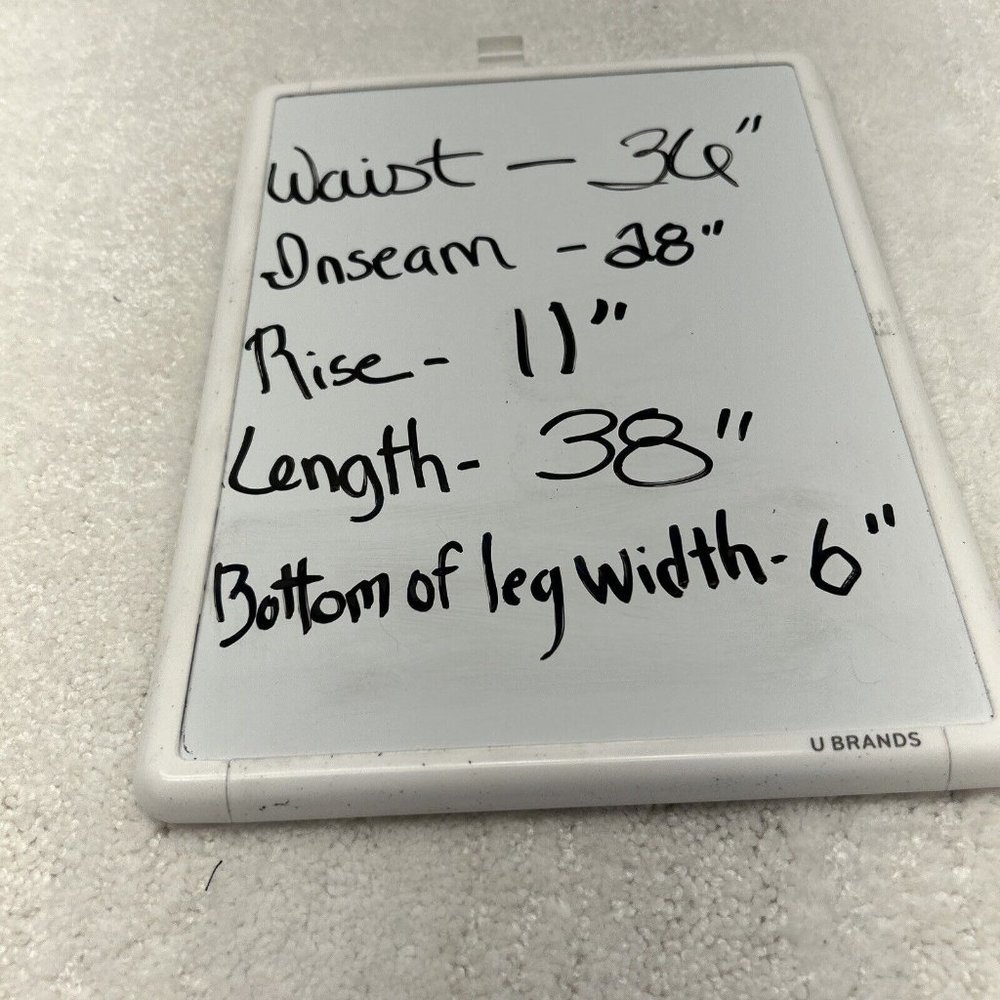 Waist - 36"
Inseam - 28"
Rise - 11"
Length - 38"
Bottom of leg width - 6"
U BRANDS